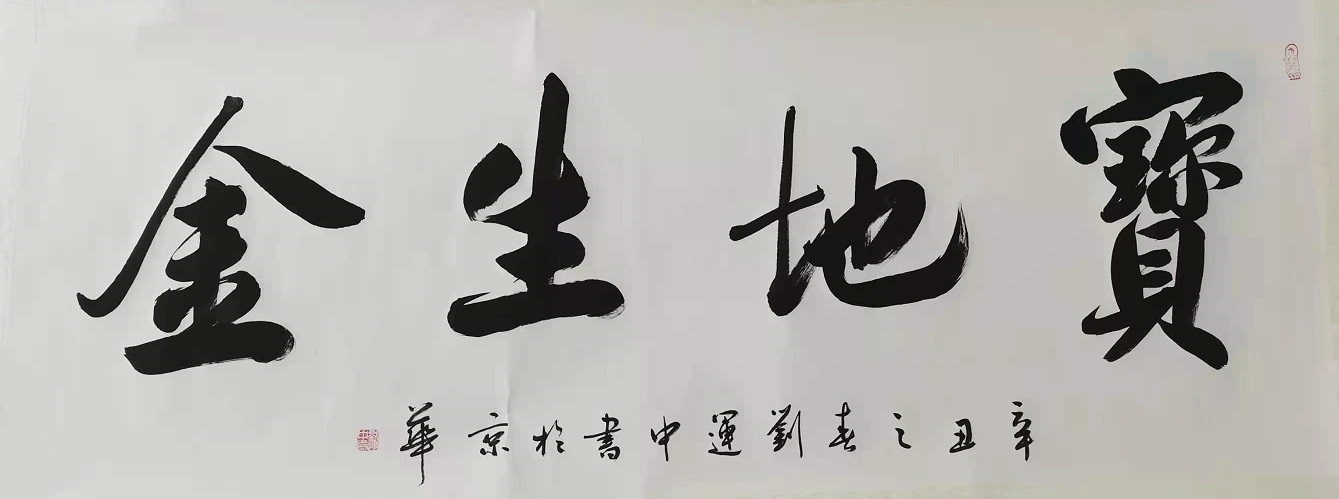 寶地生金
辛丑之春劉運中書於京華